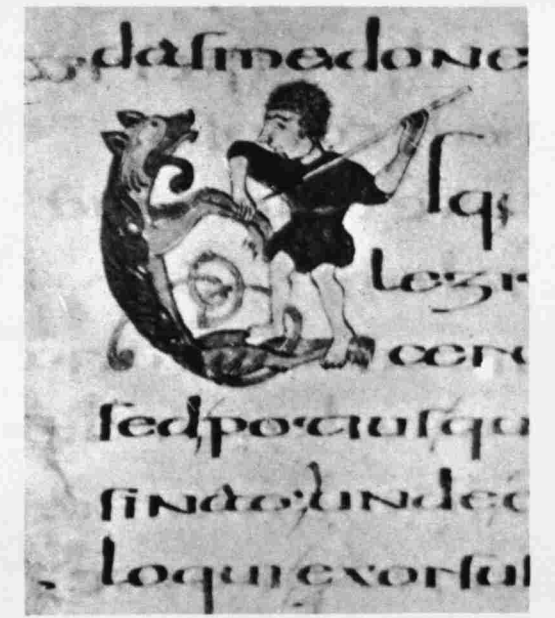 dasmedone
sq;
legr
cer
sedpotiusqu
sindo;unde
loqui exorsus